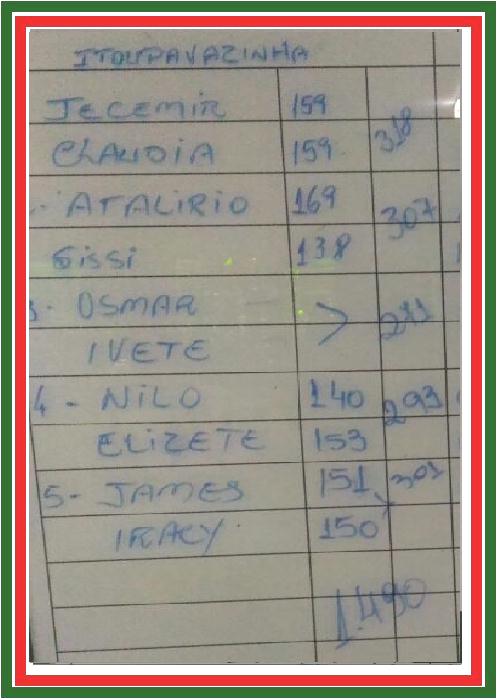 ITOUPAVAZINHA
JECEMIR 159
CLAUDIA 159 318
ATALIRIO 169
138 307
3. OSMAR
IVETE
4 - NILO 140 293
ELIZETE 153
5- JAMES 151 301
IRACY 150
1.490